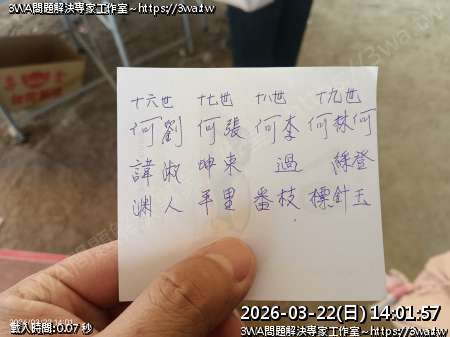 3WA問題解決專家工作室~https://3wa.tw
十六世 十七世 十八世 十九世
何劉 何張 何李 何林何
諱淑 坤東 過 綠登
渊人 平里 番枝 標針玉
2026-03-22(日) 14:01:57
載入時間:0.07 秒
3WA問題解決專家工作室~https://3wa.tw